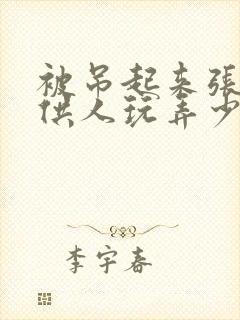 被吊起来张
供人玩弄少
李宇春